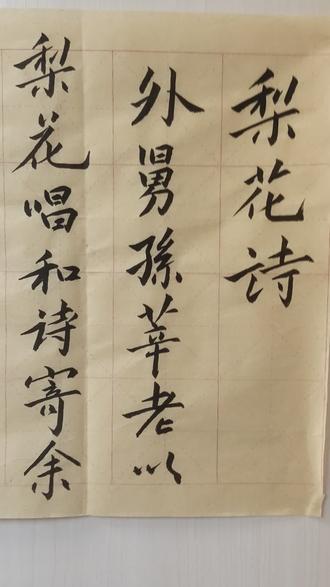 梨花诗
外舅孫莘老以
梨花唱和诗寄余